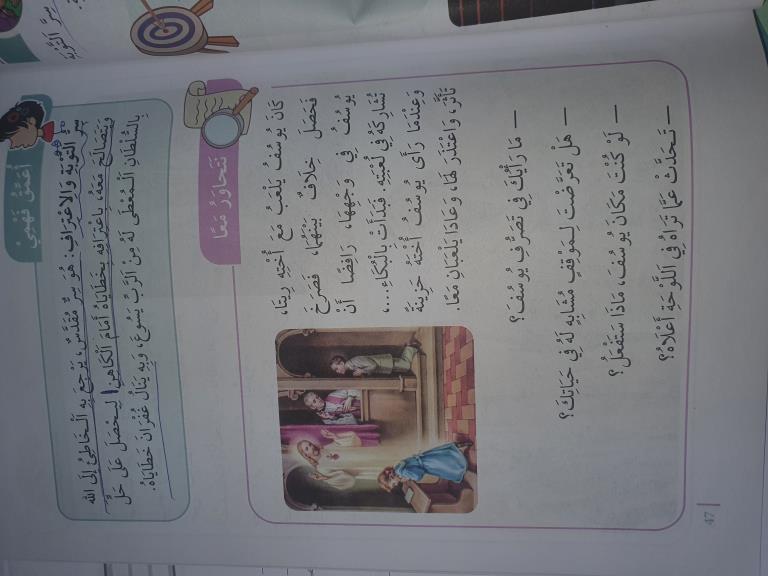 سِرُّ التَّوْبَةِ
أُعَمِّقُ فَهْمِيْ
سِرُّ التَّوْبَةِ وَالِاعْتِرَافِ: هُوَ سِرٌّ مُقَدَّسٌ، يَرْجِعُ بِهِ الْخَاطِئُ إِلَى اللهِ
وَيَتَصَالَحُ مَعَهُ، بِاعْتِرَافِهِ بِخَطَايَاهُ أَمَامَ الْكَاهِنِ لِيَحْصَلَ عَلَى حَلٍّ
بِالسُّلْطَانِ الْمُعْطَى لَهُ مِنَ الرَّبِّ يَسُوعَ، وَبِهِ يَنَالُ غُفْرَانَ خَطَايَاهُ.
نَتَحَاوَرُ مَعًا
كَانَ يُوسُفُ يَلْعَبُ مَعَ أُخْتِهِ رِيتَا،
فَحَصَلَ خِلَافٌ بَيْنَهُمَا، فَصَرَخَ
يُوسُفُ فِي وَجْهِهَا، رَافِضًا أَنْ
تُشَارِكَهُ فِي لُعْبَتِهِ، فَبَدَأَتْ بِالْبُكَاءِ....،
وَعِنْدَمَا رَأَى يُوسُفُ أُخْتَهُ حَزِينَةً
تَأَثَّرَ، وَاعْتَذَرَ لَهَا، وَعَادَا يَلْعَبَانِ مَعًا.
— مَا رَأْيُكَ فِي تَصَرُّفِ يُوسُفَ؟
— هَلْ تَعَرَّضْتَ لِمَوْقِفٍ مُشَابِهٍ لَهُ فِي حَيَاتِكَ؟
— لَوْ كُنْتَ مَكَانَ يُوسُفَ، مَاذَا سَتَفْعَلُ؟
— تَحَدَّثْ عَمَّا تَرَاهُ فِي اللَّوْحَةِ أَعْلَاهُ؟
47